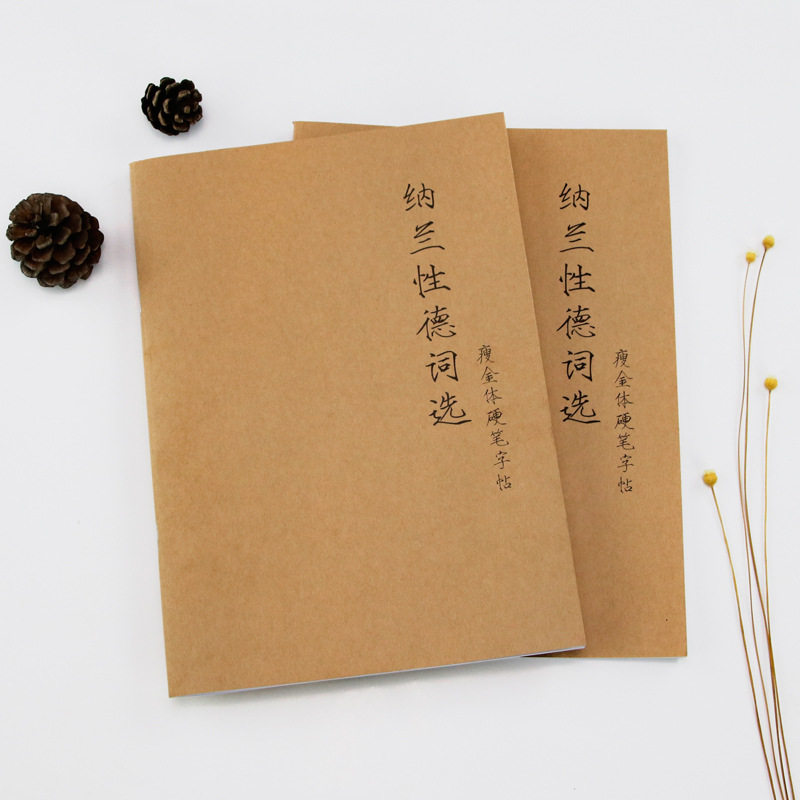 纳兰性德词选
瘦金体硬笔字帖
纳兰性德词选
瘦金体硬笔字帖